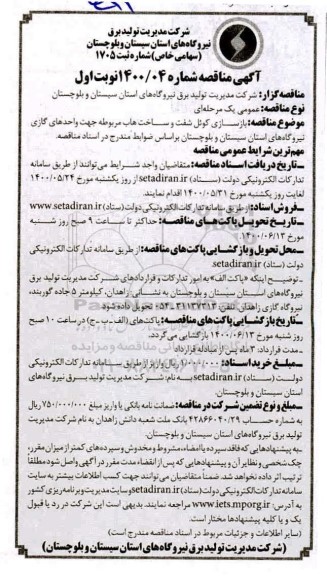 شرکت مدیریت تولید برق
نیروگاه‌های استان سیستان و بلوچستان
(سهامی خاص) شماره ثبت ۱۷۰۵
آگهی مناقصه شماره ۱۴۰۰/۰۴ نوبت اول
مناقصه گزار: شرکت مدیریت تولید برق نیروگاه‌های استان سیستان و بلوچستان
نوع مناقصه: عمومی یک مرحله‌ای
موضوع مناقصه: بازسازی کوئل شفت و ساخت هاب مربوطه جهت واحدهای گازی
نیروگاه‌های استان سیستان و بلوچستان براساس ضوابط مندرج در اسناد مناقصه.
مهم‌ترین شرایط عمومی مناقصه
ـ تاریخ دریافت اسناد مناقصه: متقاضیان واجد شرایط می‌توانند از طریق سامانه
تدارکات الکترونیکی دولت (ستاد) setadiran.ir از روز یکشنبه مورخ ۱۴۰۰/۰۵/۲۴
لغایت روز یکشنبه مورخ ۱۴۰۰/۰۵/۳۱ اقدام نمایند.
ـ فروش اسناد: از طریق سامانه تدارکات الکترونیکی دولت (ستاد) www.setadiran.ir
ـ تاریخ تحویل پاکت‌های مناقصه: حداکثر تا ساعت ۹ صبح روز شنبه
مورخ ۱۴۰۰/۰۶/۱۳
ـ محل تحویل و بازگشایی پاکت‌های مناقصه: از طریق سامانه تدارکات الکترونیکی
دولت (ستاد) setadiran.ir.
ـ توضیح اینکه «پاکت الف» به امور تدارکات و قراردادهای شرکت مدیریت تولید برق
نیروگاه‌های استان سیستان و بلوچستان به نشانی زاهدان، کیلومتر ۵ جاده گوربند،
نیروگاه گازی زاهدان تلفن: ۳۱۱۳۷۳۱۳-۰۵۴ تحویل داده شود.
ـ تاریخ بازگشایی پاکت‌های مناقصه: پاکت‌های (الف-ب-ج) در ساعت ۱۰ صبح
روز شنبه مورخ ۱۴۰۰/۰۶/۱۳ بازگشایی می‌گردد.
ـ مدت قرارداد: ۳ ماه پس از مبادله قرارداد
ـ مبلغ خرید اسناد: ۱/۰۰۰/۰۰۰ ریال واریز از طریق سامانه تدارکات الکترونیکی
دولت (ستاد) setadiran.ir به نام: شرکت مدیریت تولید برق نیروگاه‌های
استان سیستان و بلوچستان.
ـ مبلغ و نوع تضمین شرکت در مناقصه: ضمانت نامه بانکی یا واریز مبلغ ۷۵۰/۰۰۰/۰۰۰ ریال
به شماره حساب ۴۲۸۶۶۰۴۰/۲۹ بانک ملت شعبه دانش زاهدان به نام شرکت مدیریت
تولید برق نیروگاه‌های استان سیستان و بلوچستان.
ـ به پیشنهادهایی که فاقد سپرده یا امضاء، مشروط و مخدوش و سپرده‌های کمتر از میزان مقرر،
چک شخصی و نظایر آن و پیشنهادهایی که پس از انقضاء مدت مقرر در آگهی واصل شود مطلقا
ترتیب اثر داده نخواهد شد. ضمنا متقاضیان می‌توانند جهت کسب اطلاعات بیشتر به سایت
سامانه تدارکات الکترونیکی دولت (ستاد) setadiran.ir و سایت مدیریت و برنامه‌ریزی کشور
به آدرس: www.iets.mporg.ir مراجعه نمایند. بدیهی است این شرکت در رد یا قبول
یک و یا کلیه پیشنهادها مختار است.
(سایر اطلاعات و جزئیات مربوط در اسناد مناقصه مندرج است)
(شرکت مدیریت تولید برق نیروگاه‌های استان سیستان و بلوچستان)